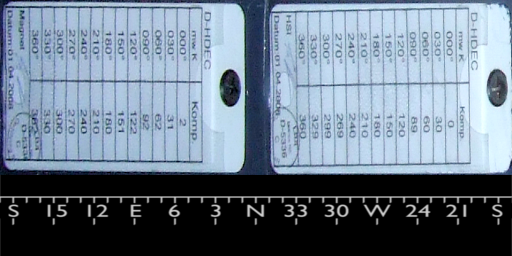 D-HDEC
mw K Komp
000° 2
030° 31
060° 62
090° 92
120° 122
150° 151
180° 180
210° 210
240° 240
270° 270
300° 300
330° 330
360°
Magnet
Datum 01 04 2008
D-HDEC
mw K Komp
000° 0
030° 30
060° 60
090° 89
120° 120
150° 150
180° 180
210° 210
240° 240
270° 269
300° 299
330° 329
360° 360
HSI
Datum 01 04 2008
S 15 12 E 6 3 N 33 30 W 24 21 S